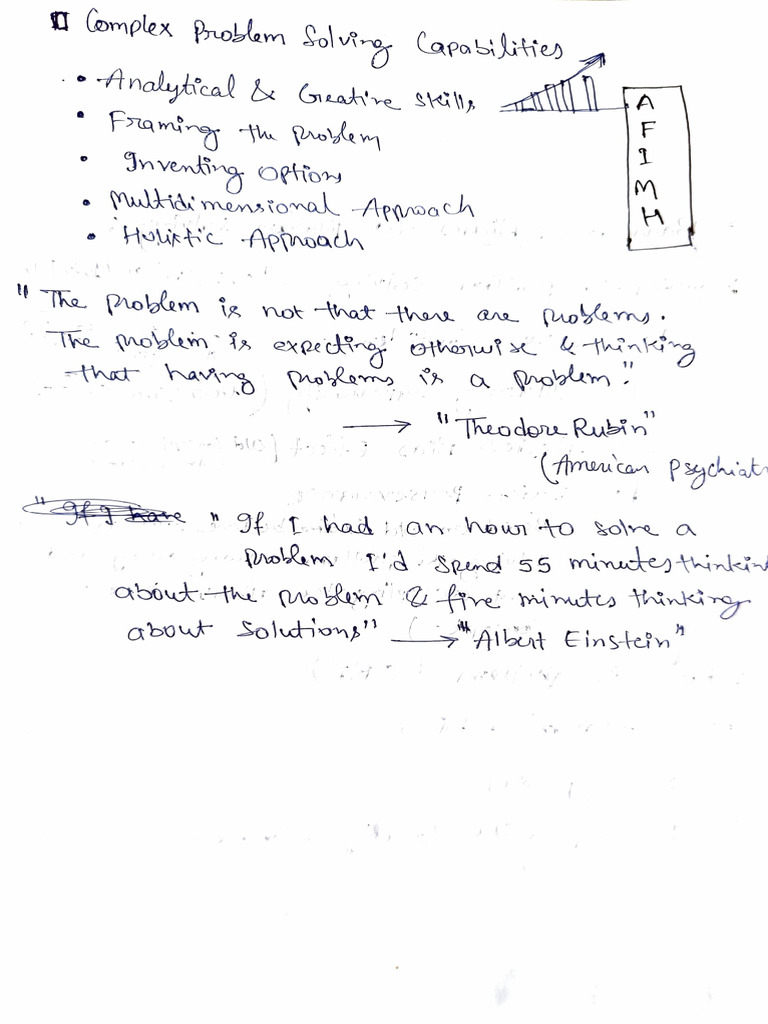 Complex Problem Solving Capabilities
• Analytical & Creative Skills
• Framing the problem
• Inventing Options
• Multidimensional Approach
• Holistic Approach
A
F
I
M
H
"The problem is not that there are problems.
The problem is expecting otherwise & thinking
that having problems is a problem."
→ "Theodore Rubin"
(American Psychiat
"If I have "If I had an hour to solve a
problem I'd spend 55 minutes thinkin
about the problem & five minutes thinking
about solutions" → "Albert Einstein"